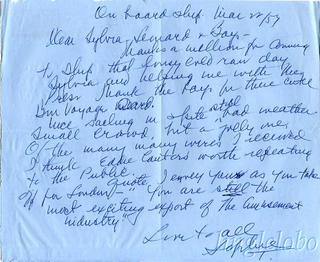 On board ship. Mar 22/57
Dear Sylvia, Leonard & Gay—
Thanks a million for coming
to Ship that lousy cold raw day
Sylvia and helping me with the
Press. Thank the boys for their cute
Bon Voyage Card.
Nice sailing in spite still bad weather
Small crowd, but a jolly one,
Of the many many wires I received
I think Eddie Cantors worth repeating
to the Public.
Quote I envy you as you take
off for London/- "You are still the
most exciting export of the Amusement
industry"
Love to all
Sophie